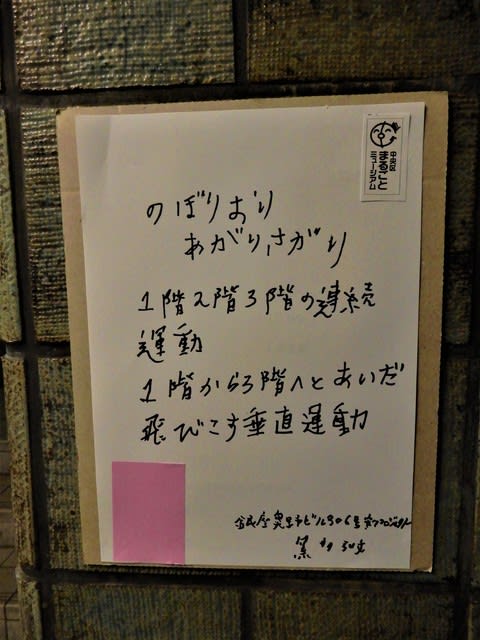 中央区
まるごと
ミュージアム
のぼりおり
あがり,さがり
1階2階3階の連続
運動
1階から3階へとあいだ
飛びこす垂直運動
銀座奥野ビル306号室プロジェクト